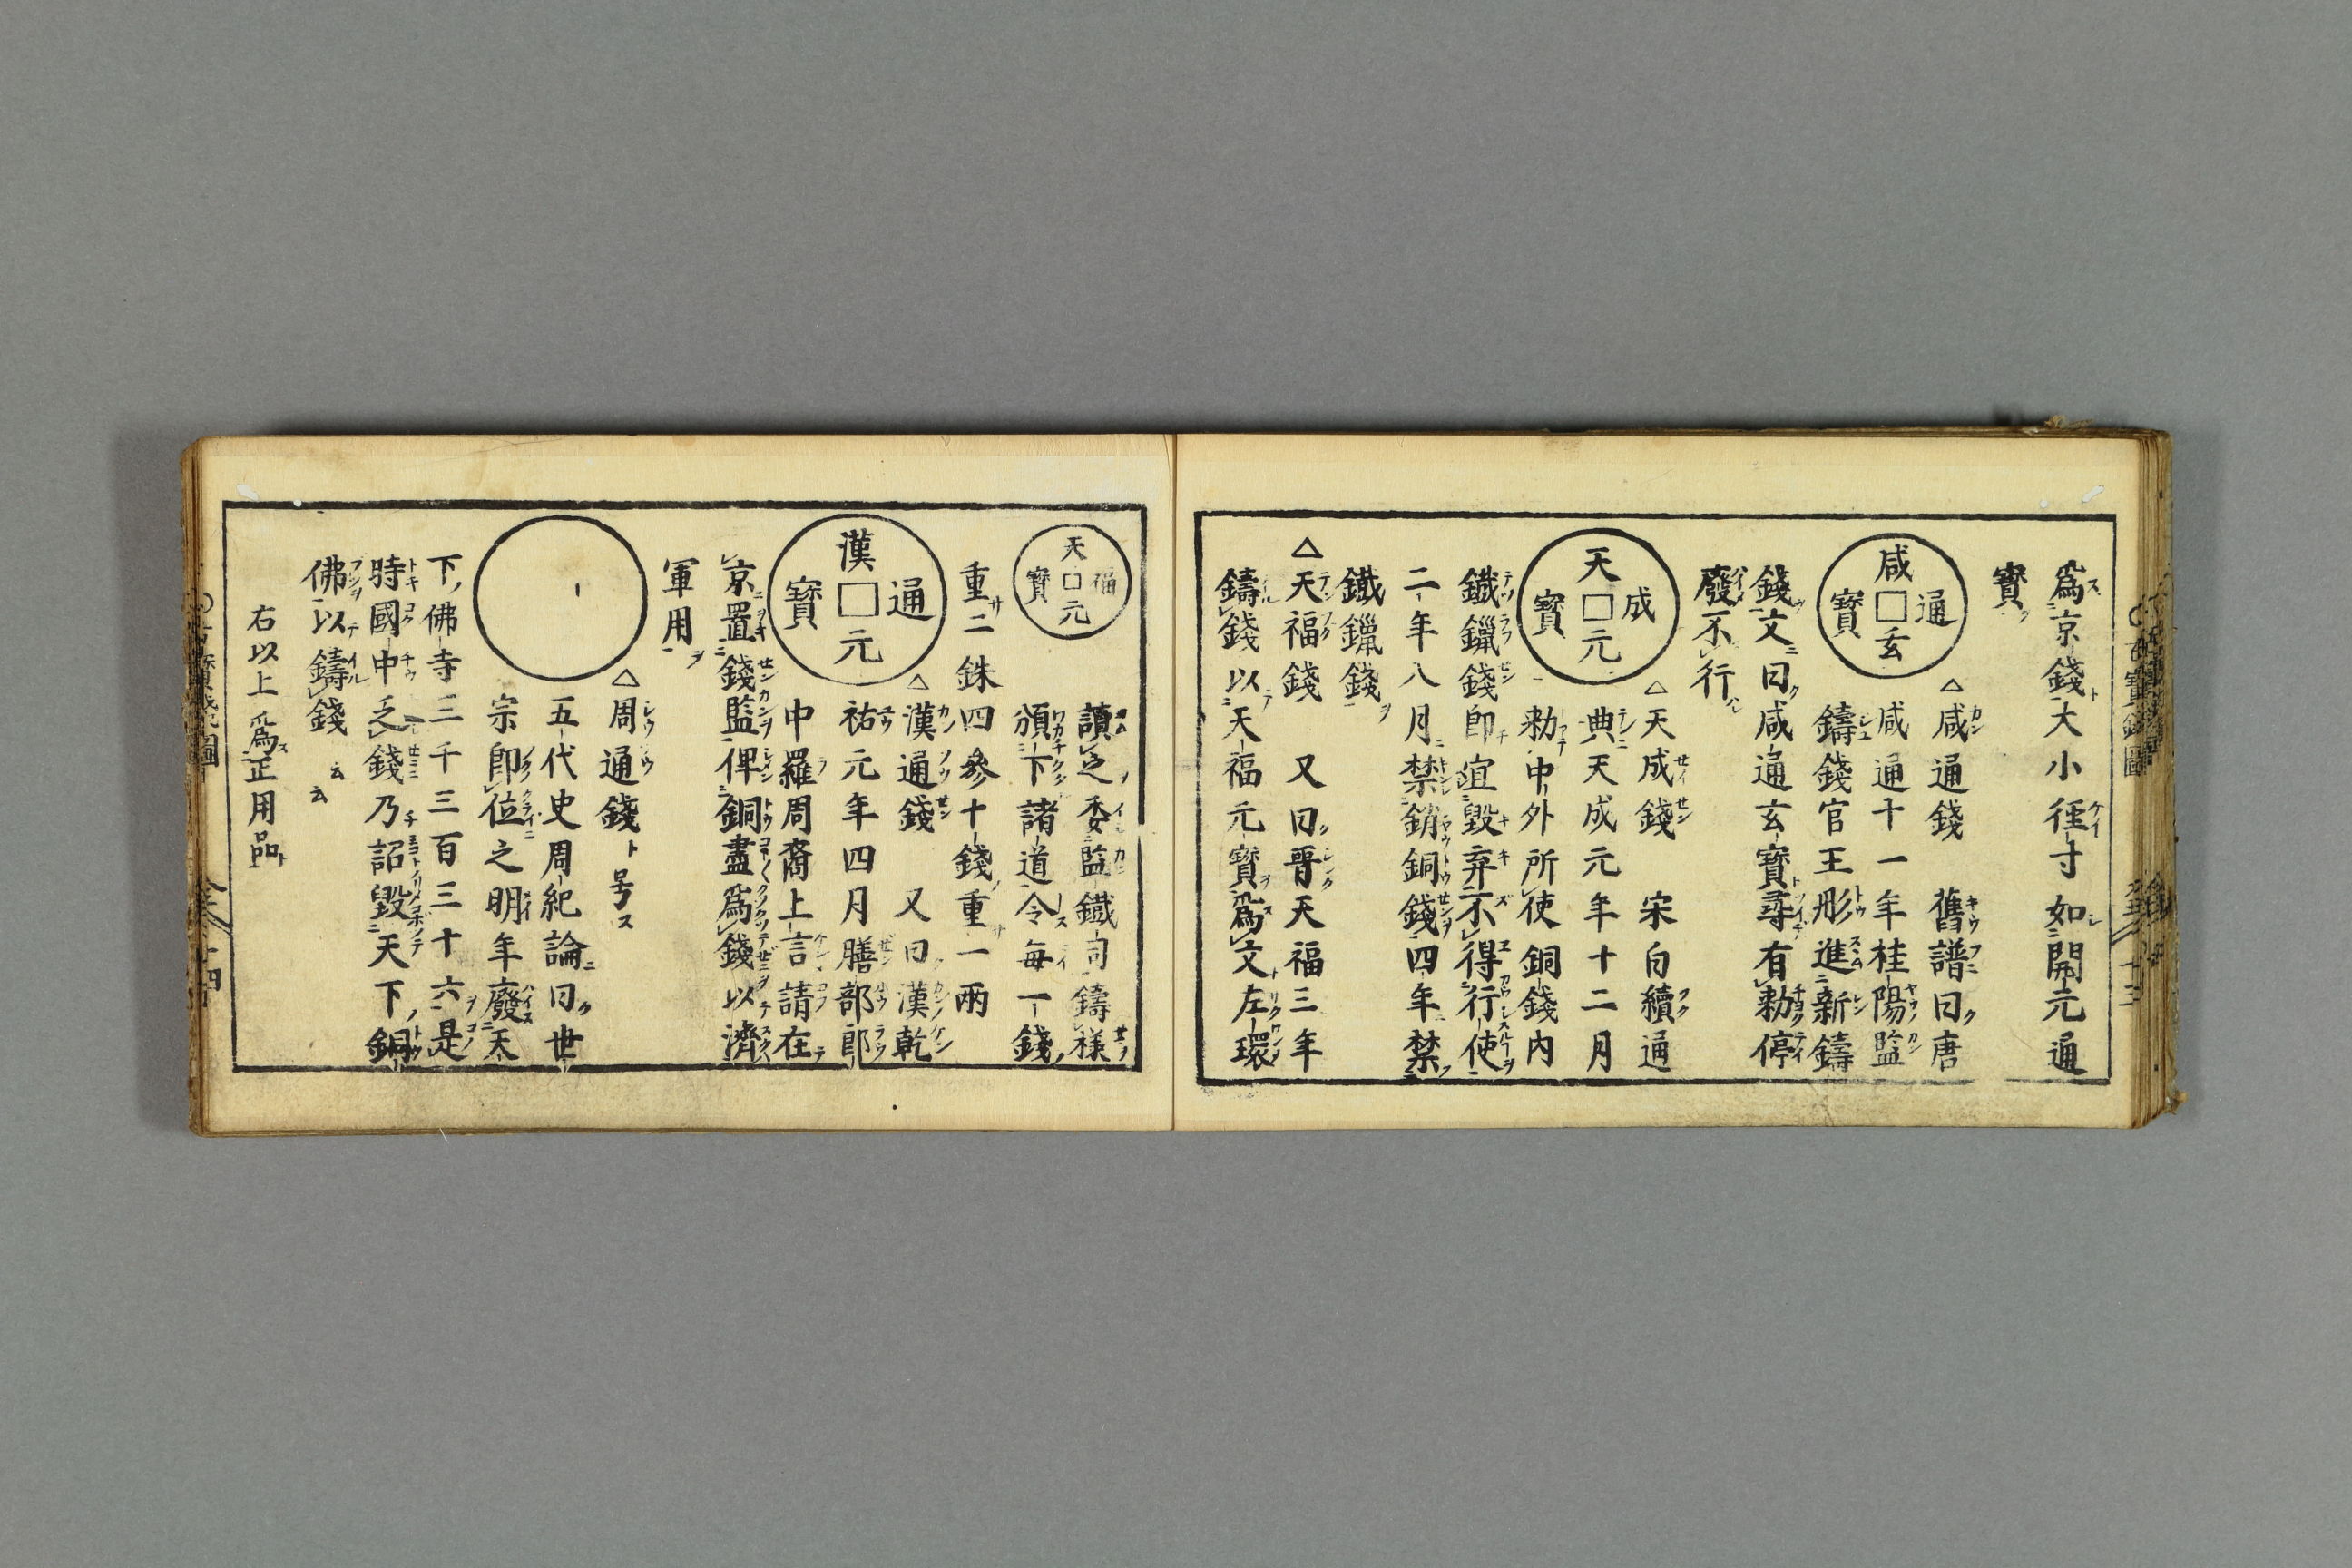 爲京錢大小徑寸如開元通
寶
咸通玄寶
△咸通錢 舊譜曰唐
咸通十一年桂陽監
鑄錢官王彤進新鑄
錢文曰咸通玄寶尋有勅停
廢不行
天成元寶
△天成錢 宋白續通
典天成元年十二月
勅中外所使銅錢内
鐵鑞錢卽宜毀弃不得行使
二年八月禁銷銅錢四年禁
鐵鑞錢
△天福錢 又曰晋天福三年
鑄錢以天福元寶爲文左環
天福元寶
讀之委監鐵司鑄樣
頒下諸道令每一錢
重二銖四參十錢重一兩
漢通元寶
△漢通錢 又曰漢乾
祐元年四月膳部郎
中羅周裔上言請在
京置錢監俾銅盡爲錢以濟
軍用
△周通錢ト号ス
五代史周紀論曰世
宗卽位之明年廢天
下佛寺三千三百三十六是
時國中乏錢乃詔毀天下銅
佛以鑄錢 云云
右以上爲正用品